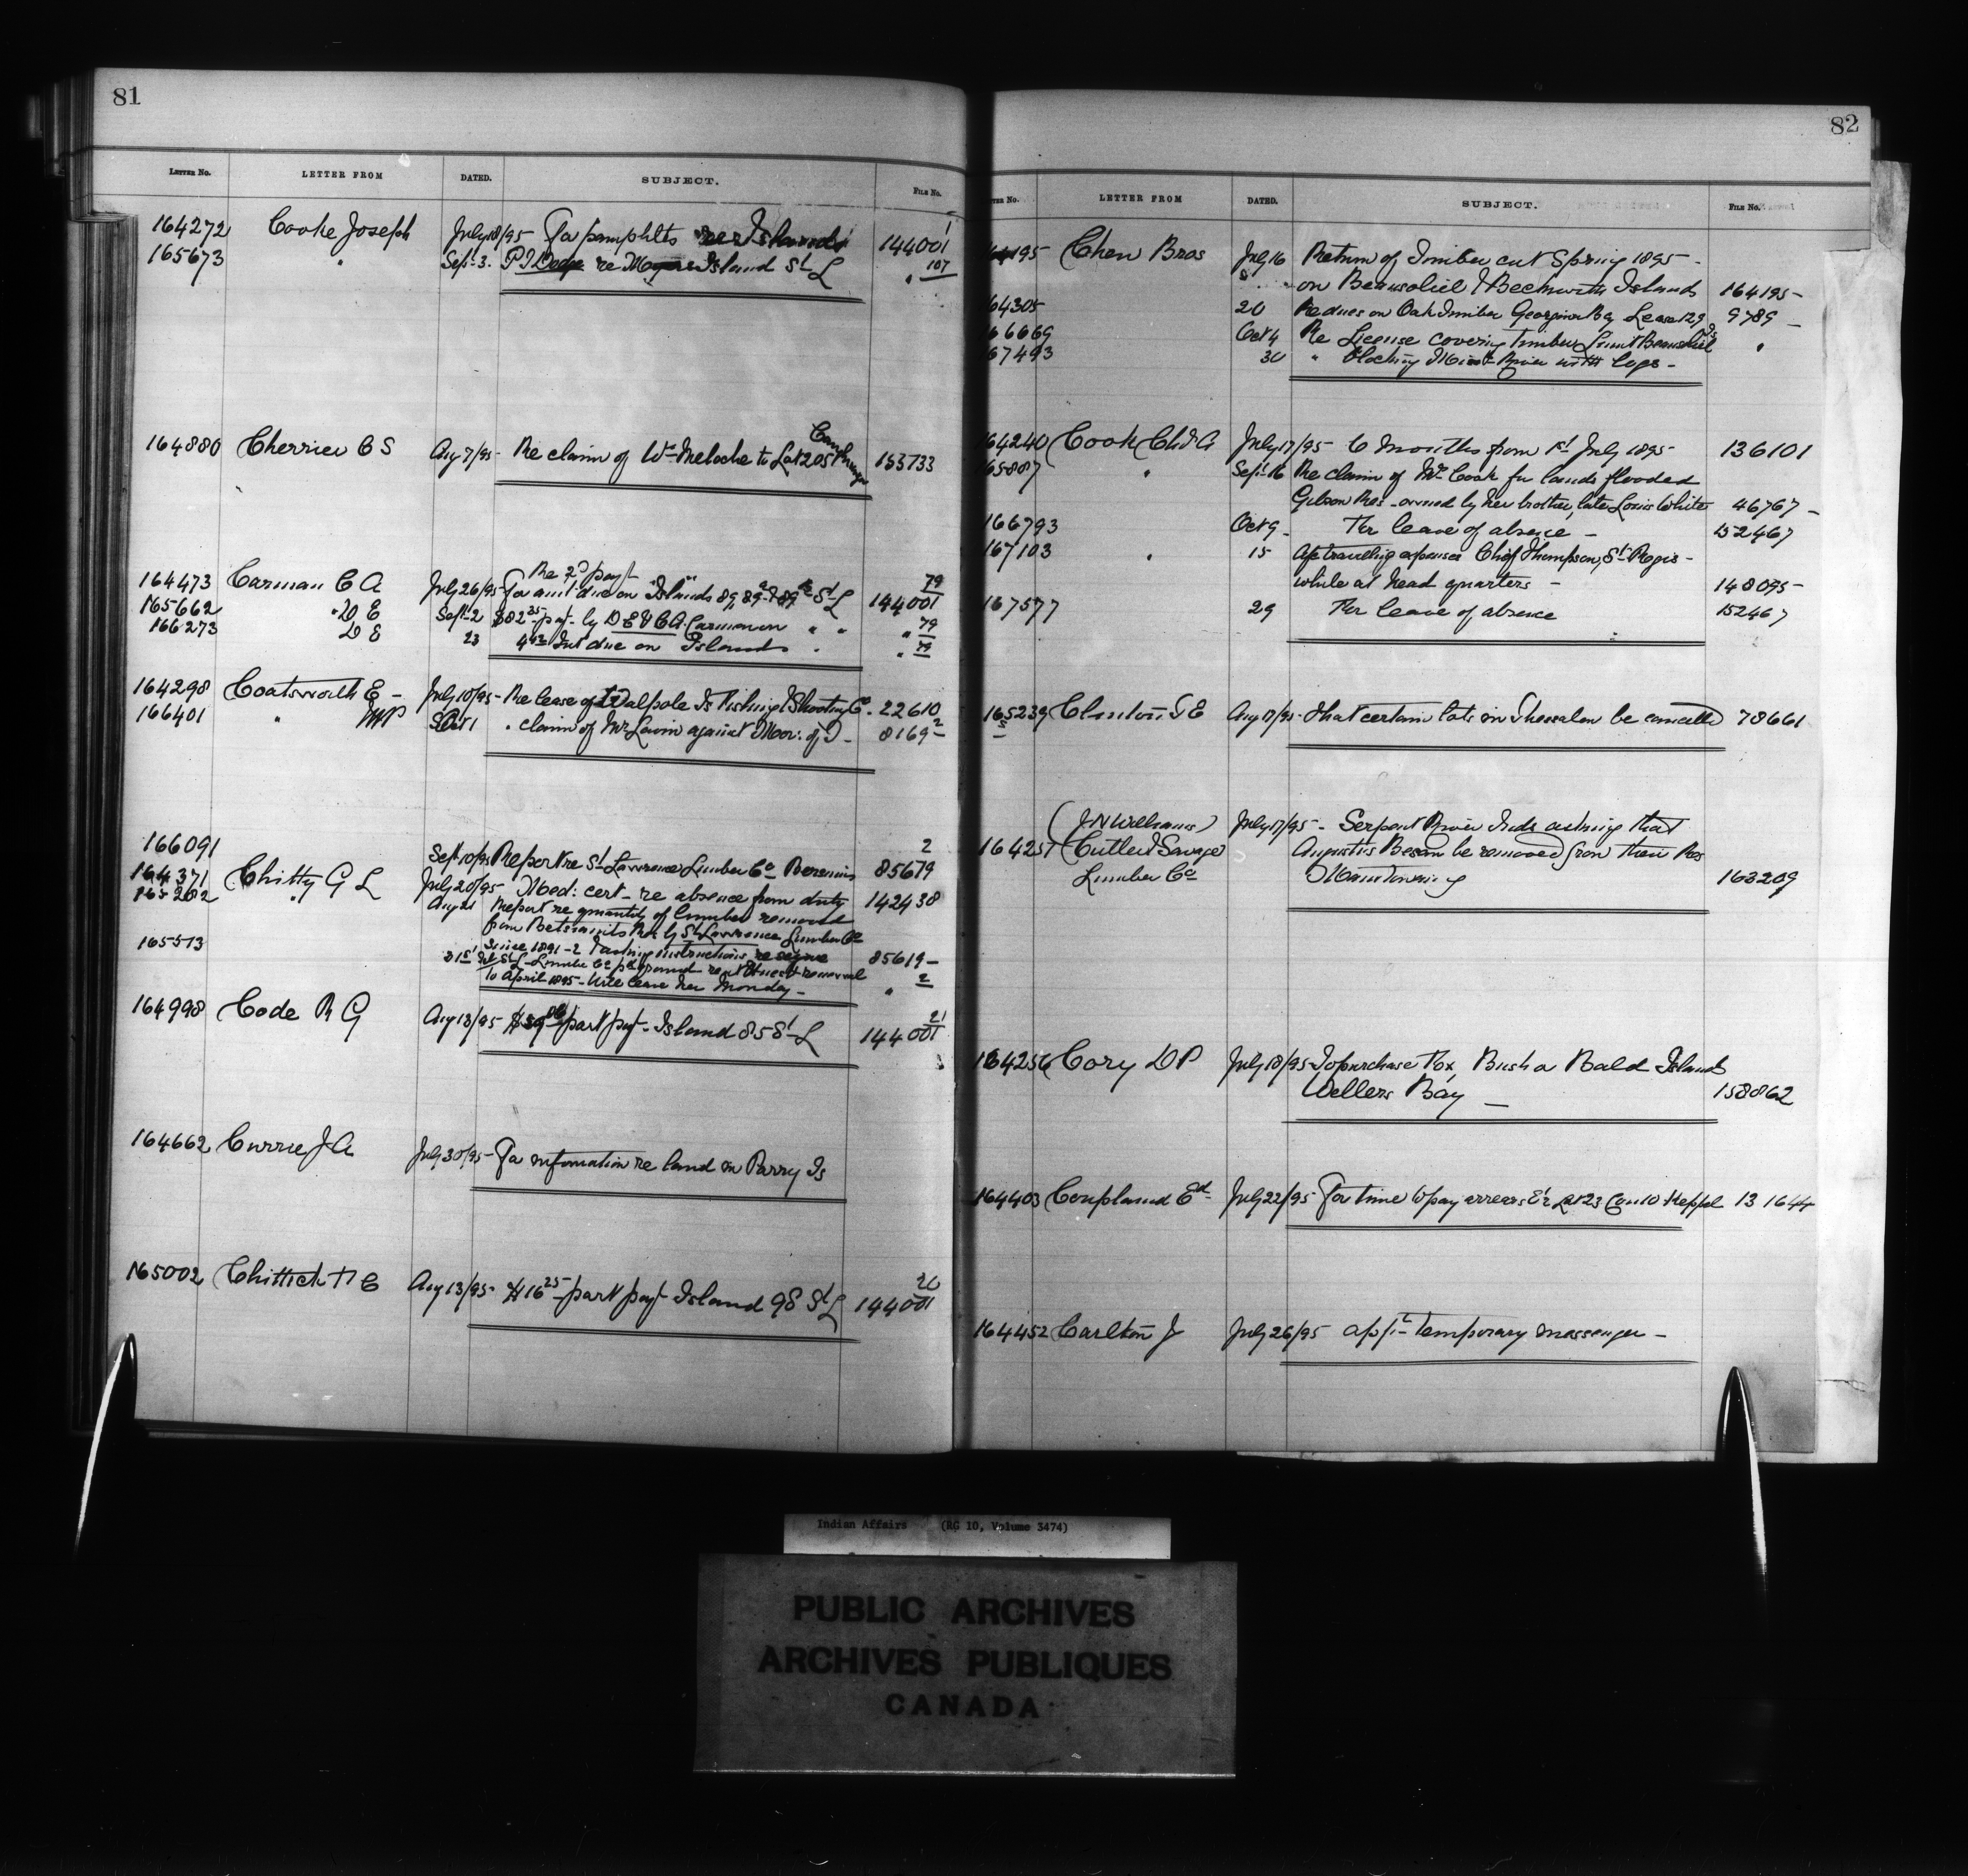 81
LETTER No. LETTER FROM DATED. SUBJECT. FILE No.
164272 Cooke Joseph July 18/95 For pamphlets re Islands 144001 1
165673 " Sept 3. P J Dodge re Island St L " 107
164880 Cherrier C S Aug 7/95 Re claim of Wm Meloche to Lot 205 Caughnaga 153733
Re 2d payt
164473 Carman C A July 26/95 For amt due on Islands 89, 89a & 89 St L 144001 79
165662 " D E Sept 2 $82 35 pay by D E & C A Carman on " " " 79
166273 D E 23 Int due on Islands " " 79
164298 Coatsworth E - July 18/95 - Re lease of Walpole Is Fishing & Shooting Co. 22610
166401 " MP Oct 1 " claim of Mr against of I - 8169 2
166091 Sept 10/95 Report re St Lawrence Lumber Co 85679 2
164371 Chitty G L July 20/95 Med: cert - re absence from duty 142438
165282 " Aug 21 Report re quantity of lumber removed
from Betsiamits Res by St Lawrence Lumber Co
since 1891-2 asking instructions re 85619 -
165513 31st St L - Lumber Co pd ground rent
to April 1895 - Will leave her Monday - " 2
164998 Code R G Aug 13/95 part payt - Island 85 St L 144001 21
164662 Currie J A July 30/95 - For information re land on Parry Is
165002 Chittick H C Aug 13/95 - $16 25 part payt Island 98 St L 144001 20
82
LETTER No. LETTER FROM DATED. SUBJECT. FILE No.
64195 Chew Bros July 16 Return of Timber cut Spring 1895 -
on Beausoliel & Beckwith Islands 164195 -
64305 20 Re dues on Oak Timber Georgina Bay Lease 129 9789 -
66669 Oct 4 Re License covering Timber Limit Beausoliel Is "
67493 30 " blocking River with logs -
64240 Cook Chs A July 17/95 - 6 months from 1st July 1895 - 136101
65887 " Sept 16 Re claim of Mrs Cook for lands flooded
Gibson Res - owned by her brother, late Louis White 46767 -
166793 Oct 9 - For leave of absence - 152467
167103 " 15 Ap travelling expenses Chief Thompson, St Regis -
while at head quarters - 148095 -
167577 29 For leave of absence 152467
165239 Clinton T E Aug 17/95 - that certain lots in Thessalon be cancelled 78661
(J N Williams) July 17/95 - Serpent River Inds asking that
164257 Cutler & Savage Augustus be removed from their Res
Lumber Co Manitowaning 163209
164256 Cory D P July 18/95 To purchase Fox, Bush or Bald Island
Wellers Bay - 158862
164403 Coupland Ed July 22/95 For time to pay arrears Lot 23 Con 10 Keppel 131644
164452 Carlton J July 26/95 appt temporary messenger -
Indian Affairs (RG 10, Volume 3474)
PUBLIC ARCHIVES
ARCHIVES PUBLIQUES
CANADA